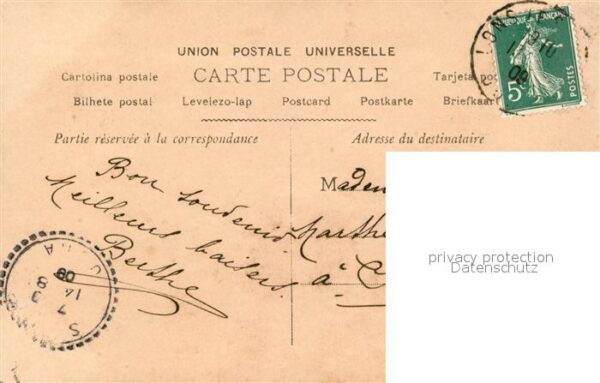 UNION POSTALE UNIVERSELLE
CARTE POSTALE
Cartolina postale
Tarjeta pos
Bilhete postal Levelezo-lap Postcard Postkarte Briefkaar
Partie réservée à la correspondance
Adresse du destinataire
Bon souvenir
Meilleurs baisers
Berthe
Madem
Marthe
à
privacy protection
Datenschutz
REPUBLIQUE FRANÇAISE
5c
POSTES
LONS
09
JURA
14
7
09